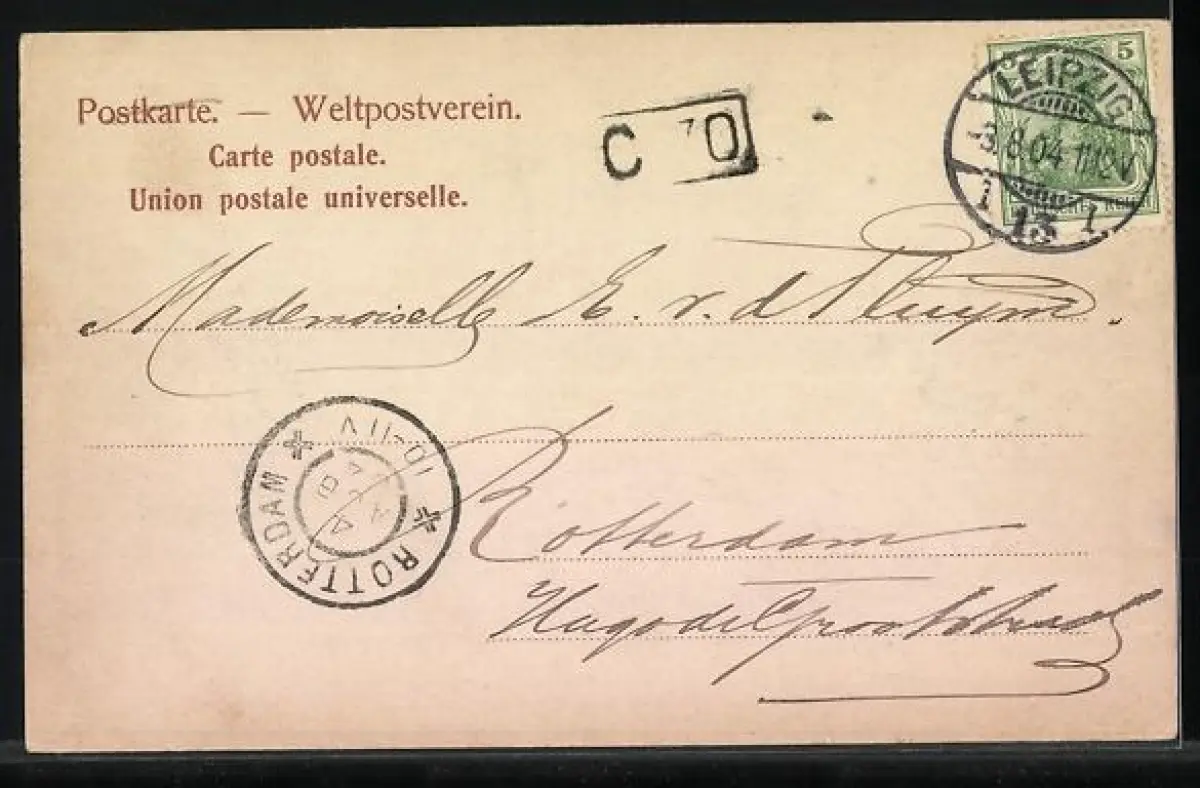 Postkarte. — Weltpostverein.
Carte postale.
Union postale universelle.
C O
5
LEIPZIG
3.8.04.11-12V
13
Mademoiselle E. v. d. Pluym.
ROTTERDAM
10-11V
Rotterdam
Hugo de Grootstraat